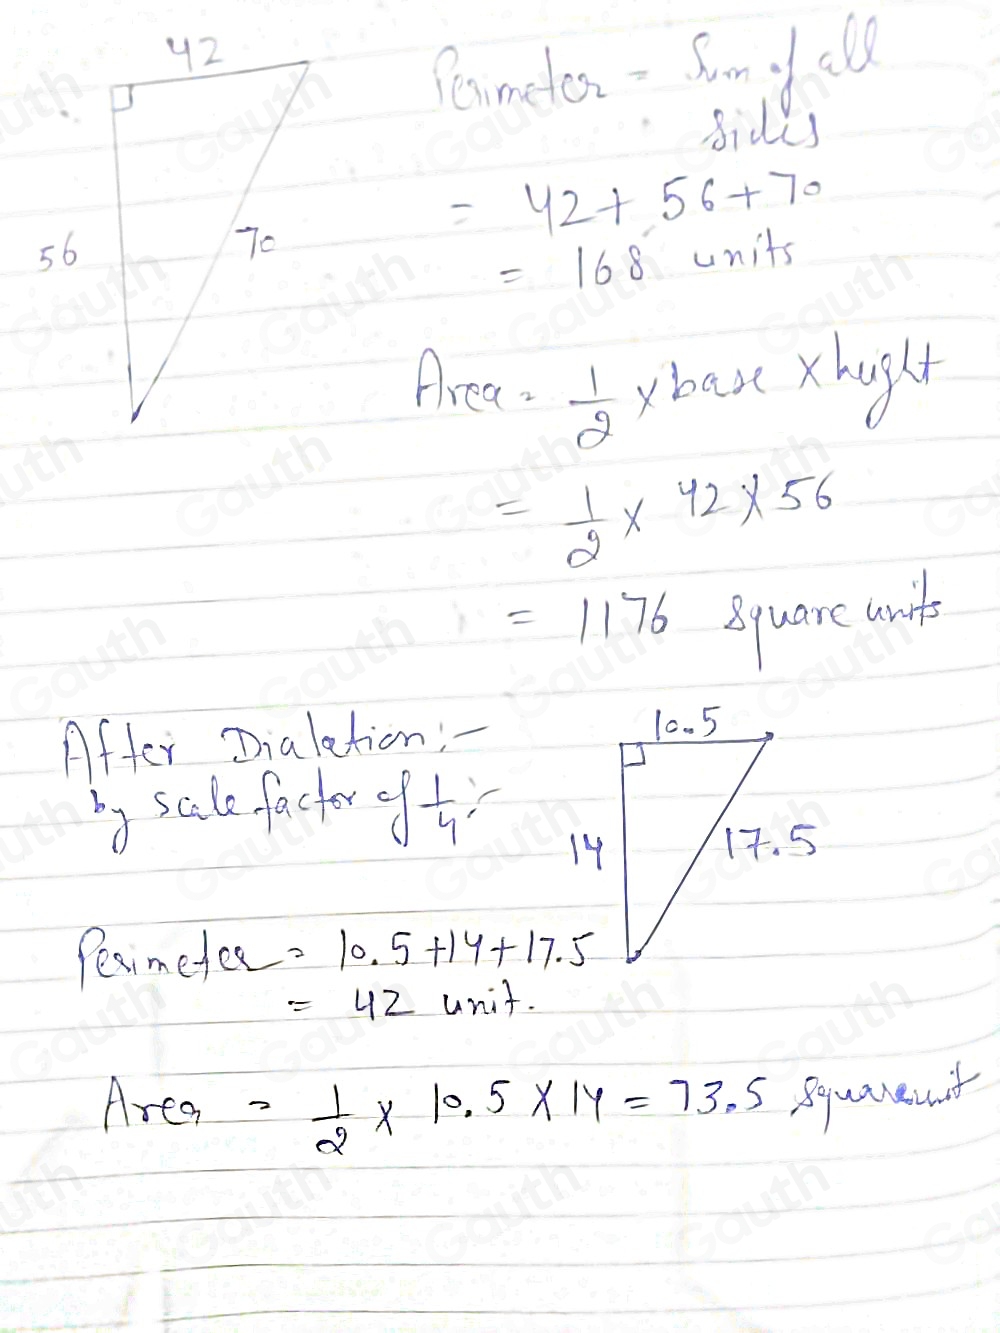 42
56
70
Perimeter = Sum of all
sides
= 42 + 56 + 70
= 168 units
Area = 1/2 × base × height
= 1/2 × 42 × 56
= 1176 square units
After Dialation :-
by scale factor of 1/4 :-
10.5
14
17.5
Perimeter = 10.5 + 14 + 17.5
= 42 unit.
Area = 1/2 × 10.5 × 14 = 73.5 square unit
Gauth